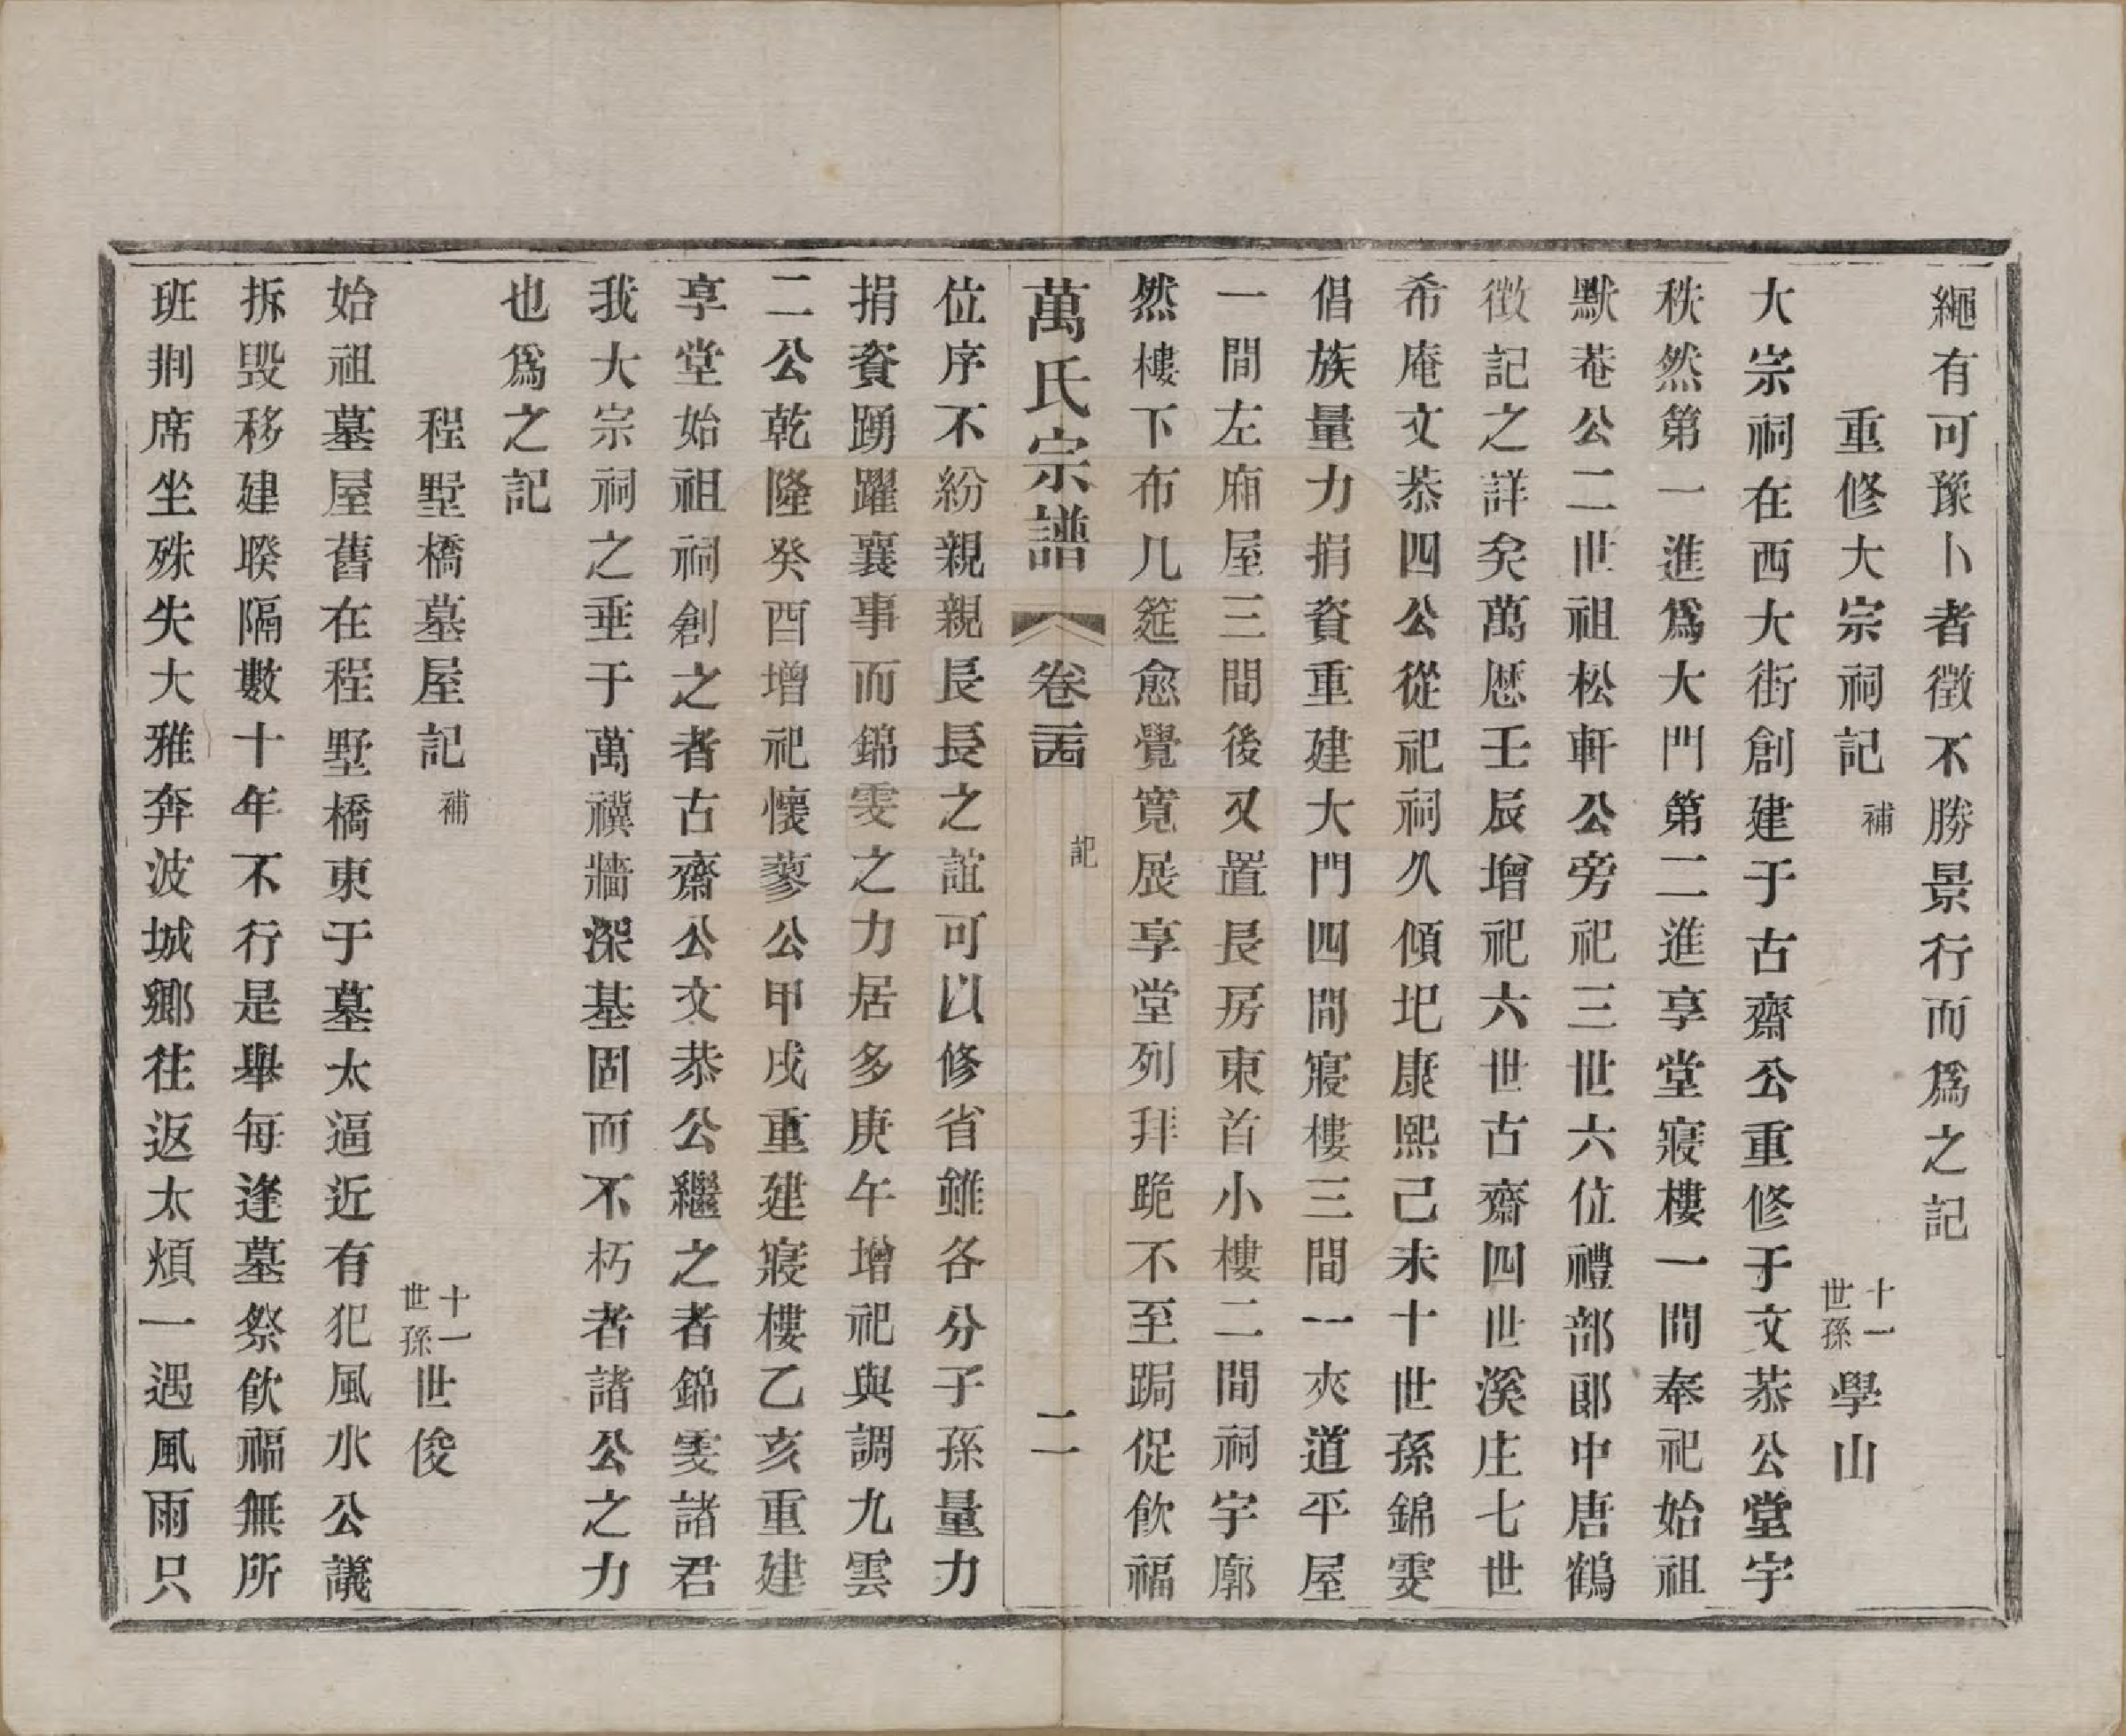 繩有可豫卜者徵不勝景行而爲之記
重修大宗祠記 補 十一世孫 學山
大宗祠在西大街創建于古齋公重修于文恭公堂宇
秩然第一進爲大門第二進享堂寢樓一間奉祀始祖
默菴公二世祖松軒公旁祀三世六位禮部郎中唐鶴
徵記之詳矣萬歷壬辰增祀六世古齋四世溪庄七世
希庵文恭四公從祀祠久傾圯康熙己未十世孫錦雯
倡族量力捐資重建大門四間寢樓三間一夾道平屋
一間左廂屋三間後又置長房東首小樓二間祠宇廓
然樓下布几筵愈覺寬展享堂列拜跪不至跼促飲福
萬氏宗譜 卷二十四 記 二
位序不紛親親長長之誼可以修省雖各分子孫量力
捐資踴躍襄事而錦雯之力居多庚午增祀與調九雲
二公乾隆癸酉增祀懷蓼公甲戌重建寢樓乙亥重建
享堂始祖祠創之者古齋公文恭公繼之者錦雯諸君
我大宗祠之垂于萬禩牆深基固而不朽者諸公之力
也爲之記
程墅橋墓屋記 補 十一世孫 世俊
始祖墓屋舊在程墅橋東于墓太逼近有犯風水公議
拆毀移建暌隔數十年不行是舉每逢墓祭飲福無所
班荆席坐殊失大雅奔波城鄉往返太煩一遇風雨只